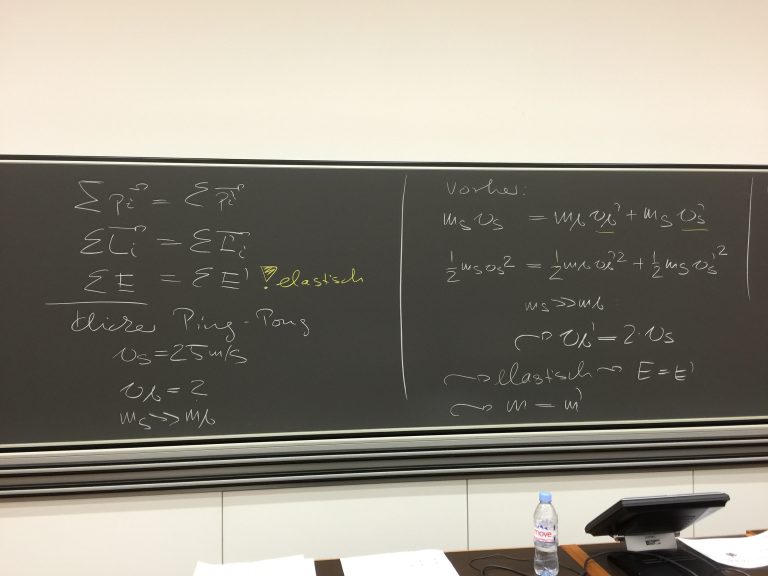 Σ p⃗ᵢ = Σ p⃗ᵢ'
Σ L⃗ᵢ = Σ L⃗ᵢ'
Σ E = Σ E' ! elastisch
Ping-Pong
v_s = 25 m/s
v_b = ?
m_s >> m_b
Vorher:
m_s v_s = m_b v_b' + m_s v_s'
1/2 m_s v_s² = 1/2 m_b v_b'² + 1/2 m_s v_s'²
m_s >> m_b
↝ v_b' = 2·v_s
↝ elastisch ↝ E = E'
↝ m = m'
move